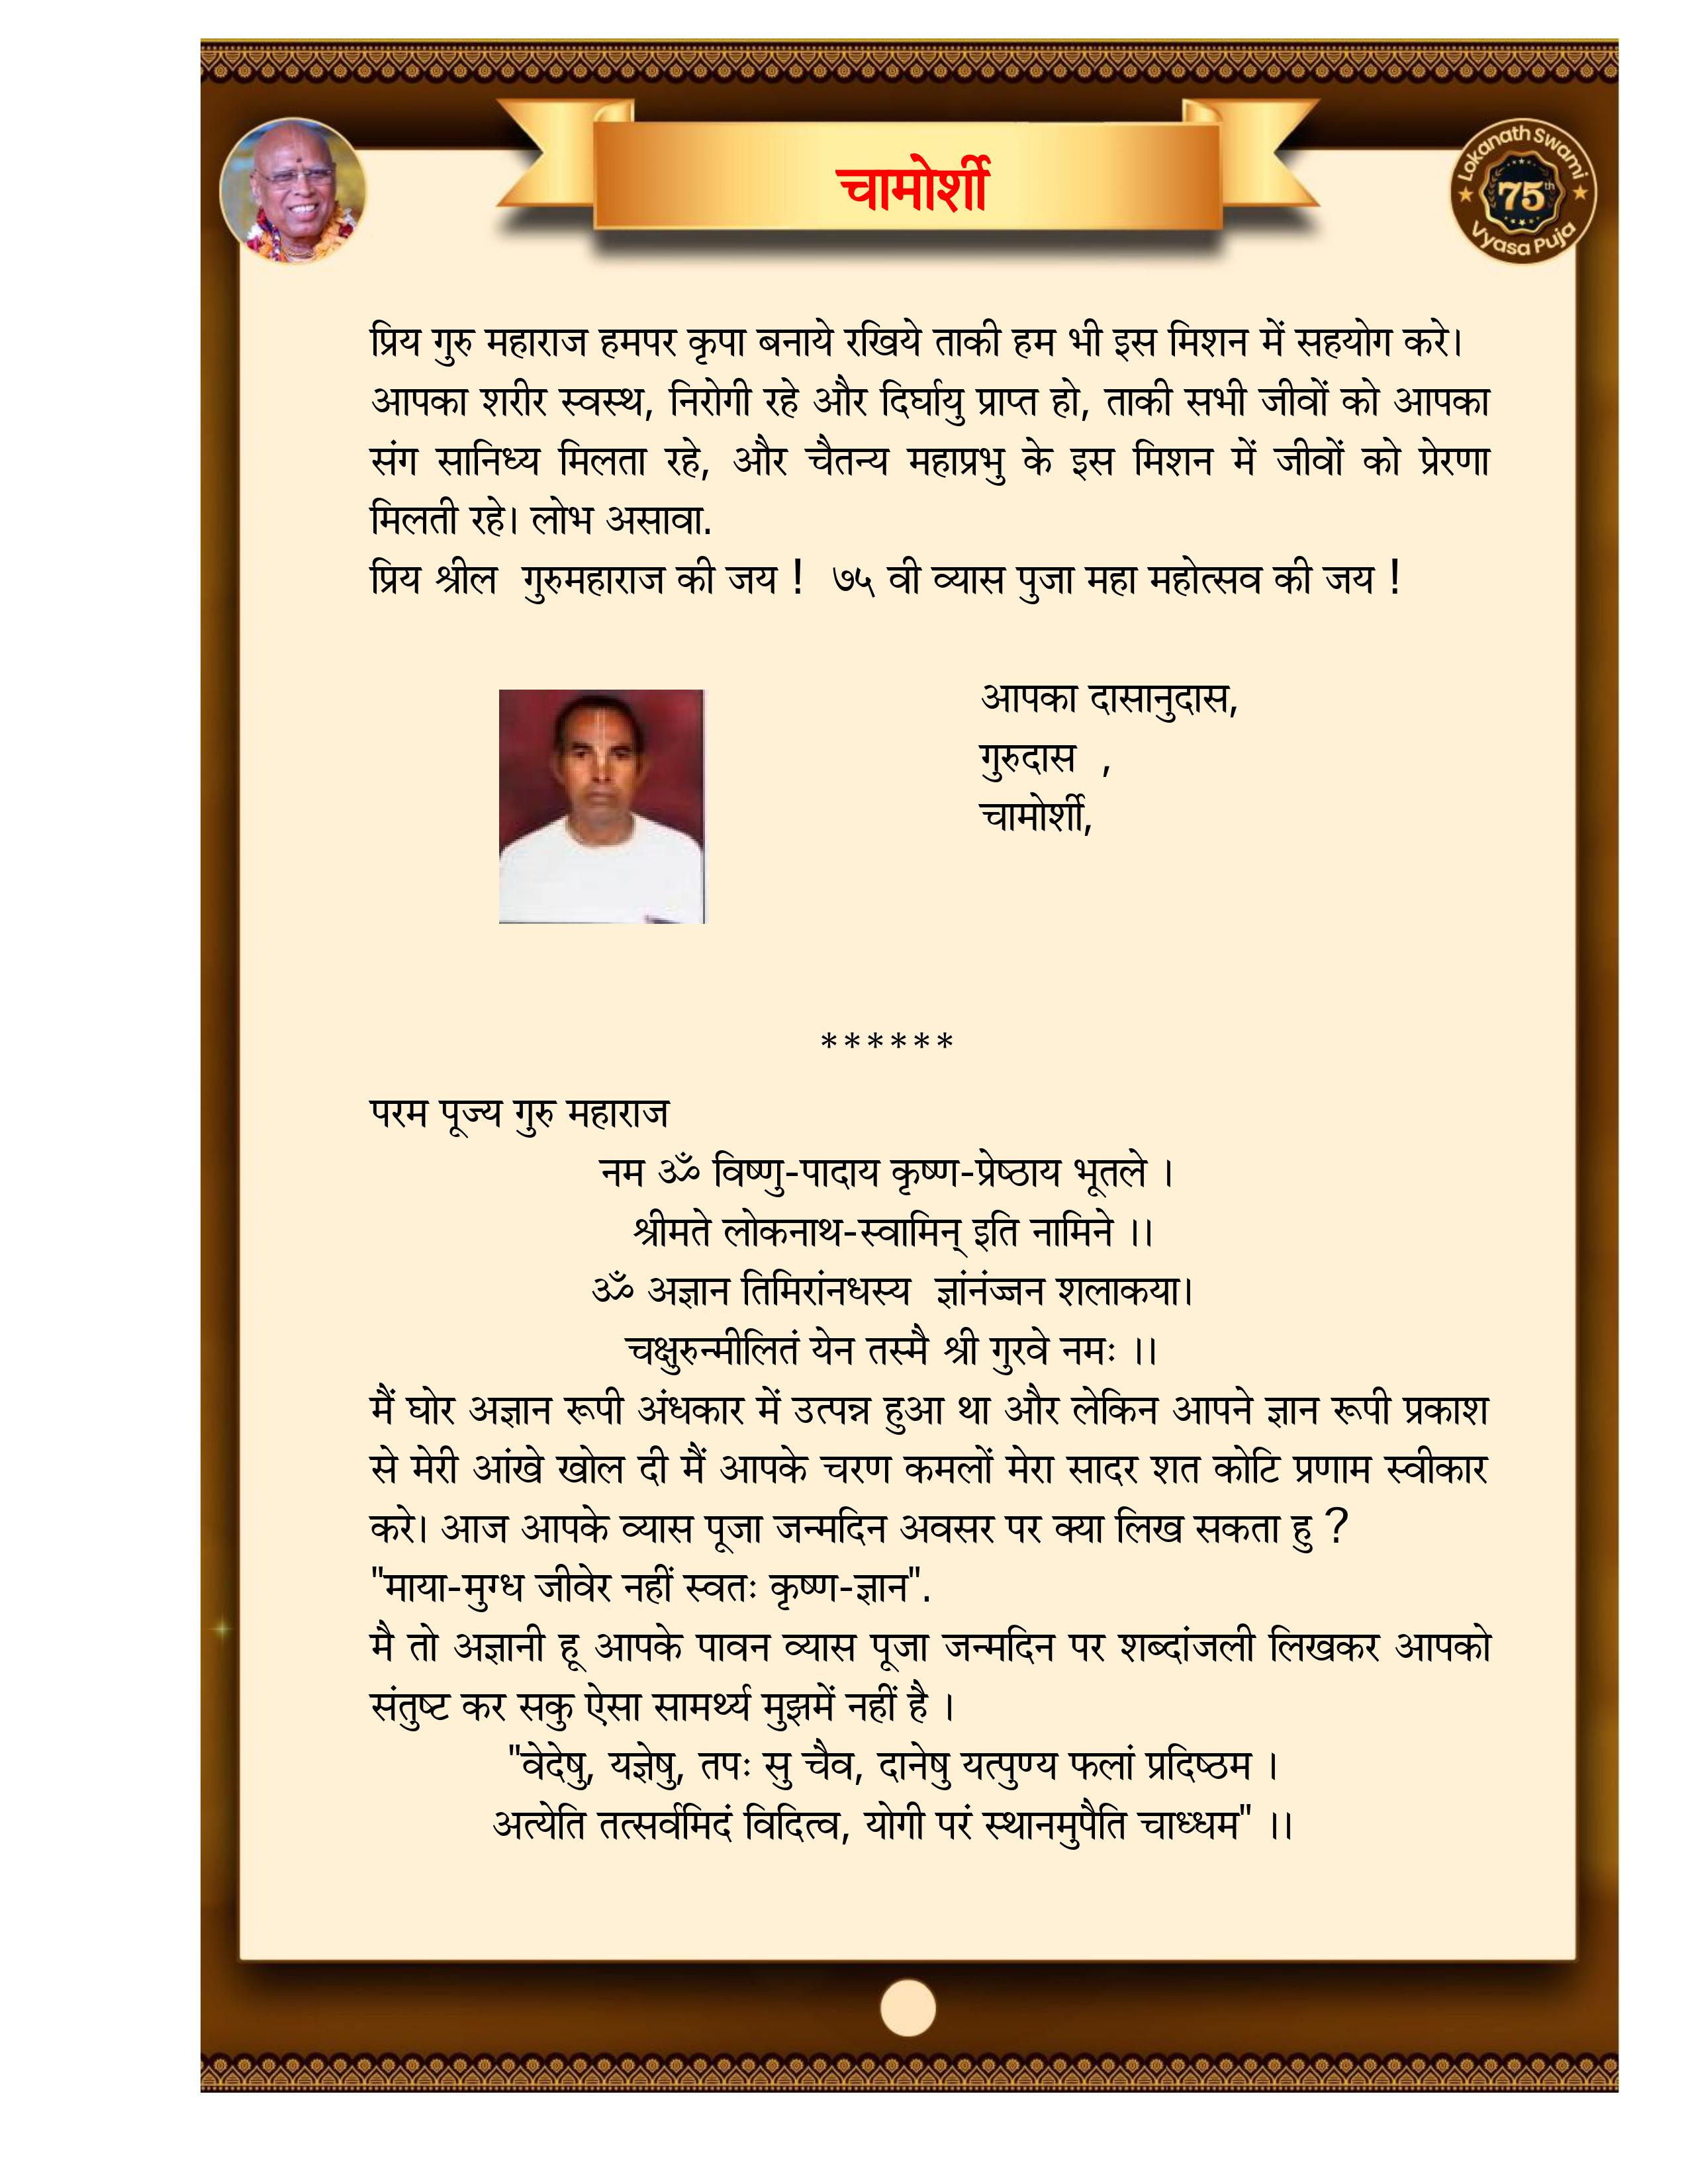 चामोर्शी
Lokanath Swami
75th
Vyasa Puja
प्रिय गुरु महाराज हमपर कृपा बनाये रखिये ताकी हम भी इस मिशन में सहयोग करे।
आपका शरीर स्वस्थ, निरोगी रहे और दिर्घायु प्राप्त हो, ताकी सभी जीवों को आपका
संग सानिध्य मिलता रहे, और चैतन्य महाप्रभु के इस मिशन में जीवों को प्रेरणा
मिलती रहे। लोभ असावा.
प्रिय श्रील  गुरुमहाराज की जय !  ७५ वी व्यास पुजा महा महोत्सव की जय !
आपका दासानुदास,
गुरुदास  ,
चामोर्शी,
******
परम पूज्य गुरु महाराज
नम ॐ विष्णु-पादाय कृष्ण-प्रेष्ठाय भूतले ।
श्रीमते लोकनाथ-स्वामिन् इति नामिने ।।
ॐ अज्ञान तिमिरांनधस्य  ज्ञांनंज्जन शलाकया।
चक्षुरुन्मीलितं येन तस्मै श्री गुरवे नमः ।।
मैं घोर अज्ञान रूपी अंधकार में उत्पन्न हुआ था और लेकिन आपने ज्ञान रूपी प्रकाश
से मेरी आंखे खोल दी मैं आपके चरण कमलों मेरा सादर शत कोटि प्रणाम स्वीकार
करे। आज आपके व्यास पूजा जन्मदिन अवसर पर क्या लिख सकता हु ?
"माया-मुग्ध जीवेर नहीं स्वतः कृष्ण-ज्ञान".
मै तो अज्ञानी हू आपके पावन व्यास पूजा जन्मदिन पर शब्दांजली लिखकर आपको
संतुष्ट कर सकु ऐसा सामर्थ्य मुझमें नहीं है ।
"वेदेषु, यज्ञेषु, तपः सु चैव, दानेषु यत्पुण्य फलां प्रदिष्ठम ।
अत्येति तत्सर्वमिदं विदित्व, योगी परं स्थानमुपैति चाध्धम" ।।